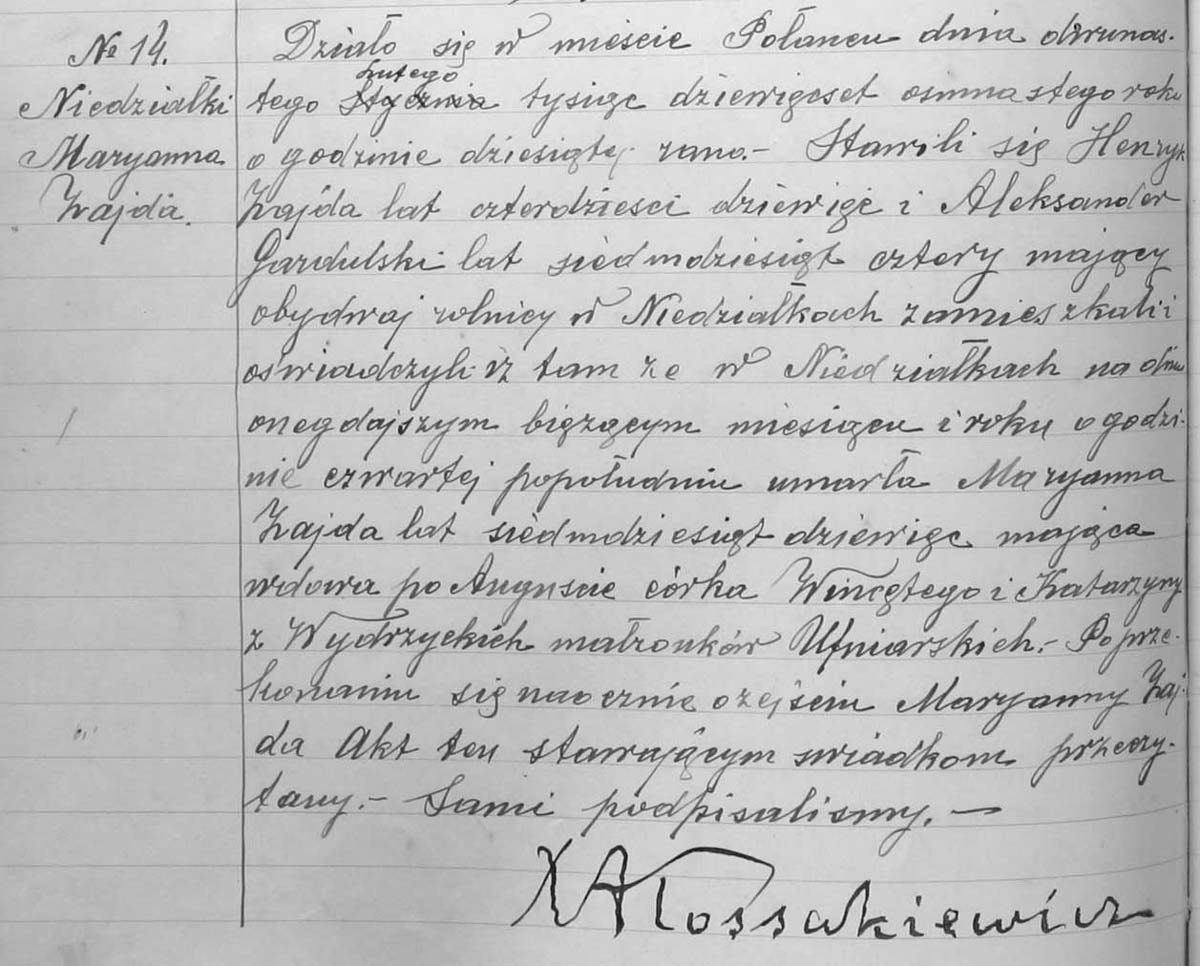 № 14.
Niedziałki
Maryanna
Zajda.
Działo się w mieście Połańcu dnia dwunas-
Lutego
tego Stycznia tysiąc dziewięćset osmnastego roku
o godzinie dziesiątej rano.- Stawili się Henryk
Zajda lat czterdzieści dziewięć i Aleksander
Gardulski lat siedmdziesiąt cztery mający
obydwaj rolnicy w Niedziałkach zamieszkali i
oświadczyli iż tam że w Niedziałkach na dniu
onegdajszym biężącym miesiącu i roku o godzi-
nie czwartej popołudniu umarła Maryanna
Zajda lat siedmdziesiąt dziewięć mająca
wdowa po Auguście córka Wincętego i Katarzyny
z Wydrzyckich małżonków Ufniarskich.- Po prze-
konaniu się naocznie o zejściu Maryanny Zaj-
da Akt ten stawającym swiadkom przeczy-
tany.- Sami podpisaliśmy. —